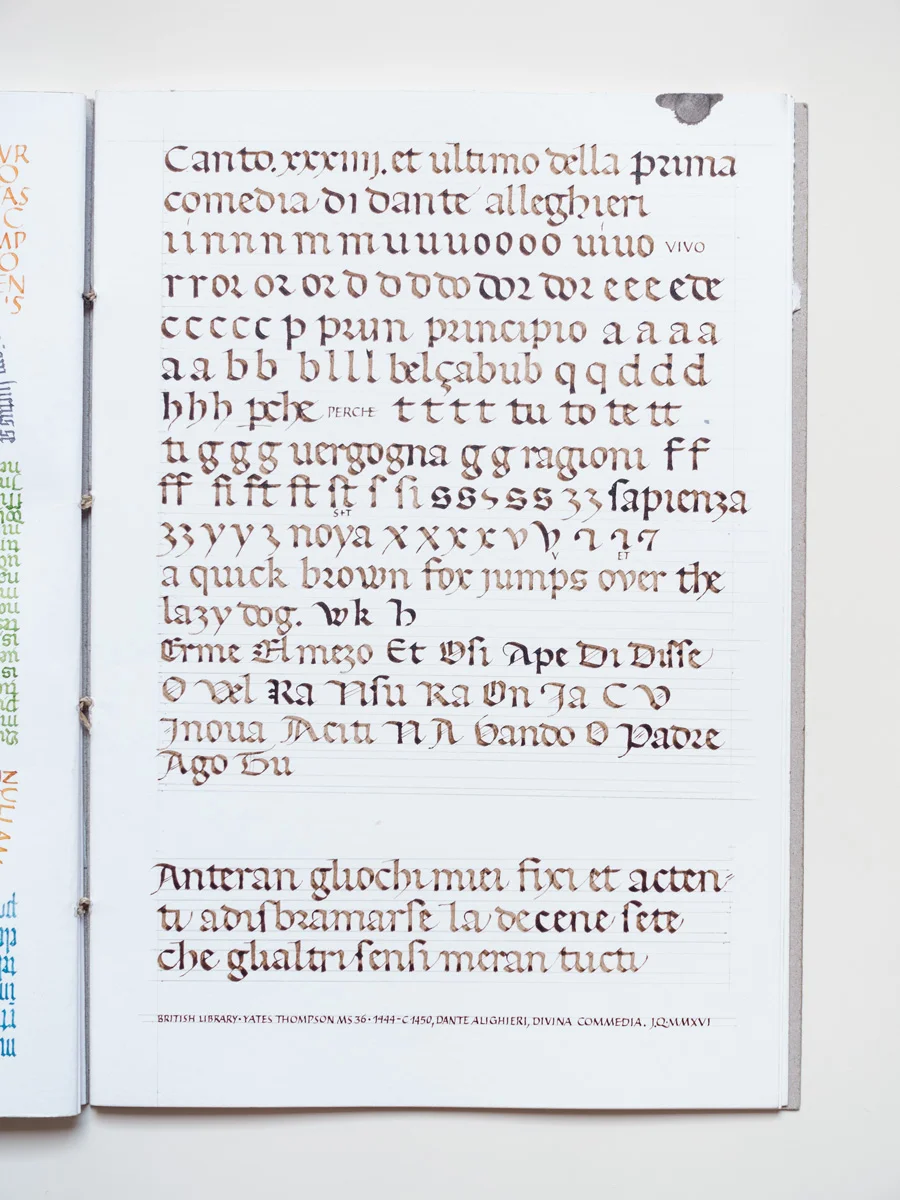 Canto.xxxiiij.et ultimo della prima
comedia di dante alleghieri
ı i i n n n m m u u u u o o o o uiuo VIVO
r r or or or d d d d do dor dor e e e ede
c c c c c p prim principio a a a a
a a b b b l l l belçabub q q d d d
h h h pche PERCHE t t t t tu to te tt
ti g g g uergogna g g ragioni f f
ff fi ft ft ſt ſ ſi s s s s s 3 3 sapienza
S+T
3 3 y y 3 noya x x x x v v ⁊ ⁊ 7
V ET
a quick brown fox jumps over the
lazy dog. wk h
Erme El mezo Et Osi Ape Di Diſſe
O Vel Ra Nſu Ra On Ja C V
Inoua Aciti N A Gando O Padre
Ago Tu
Anteran gliochi miei fixi et acten-
ti adiſbramarſe la decene ſete
che glialtri ſenſi meran tucti
BRITISH LIBRARY·YATES THOMPSON MS 36·1444-C 1450, DANTE ALIGHIERI, DIVINA COMMEDIA. J.Q·MMXVI